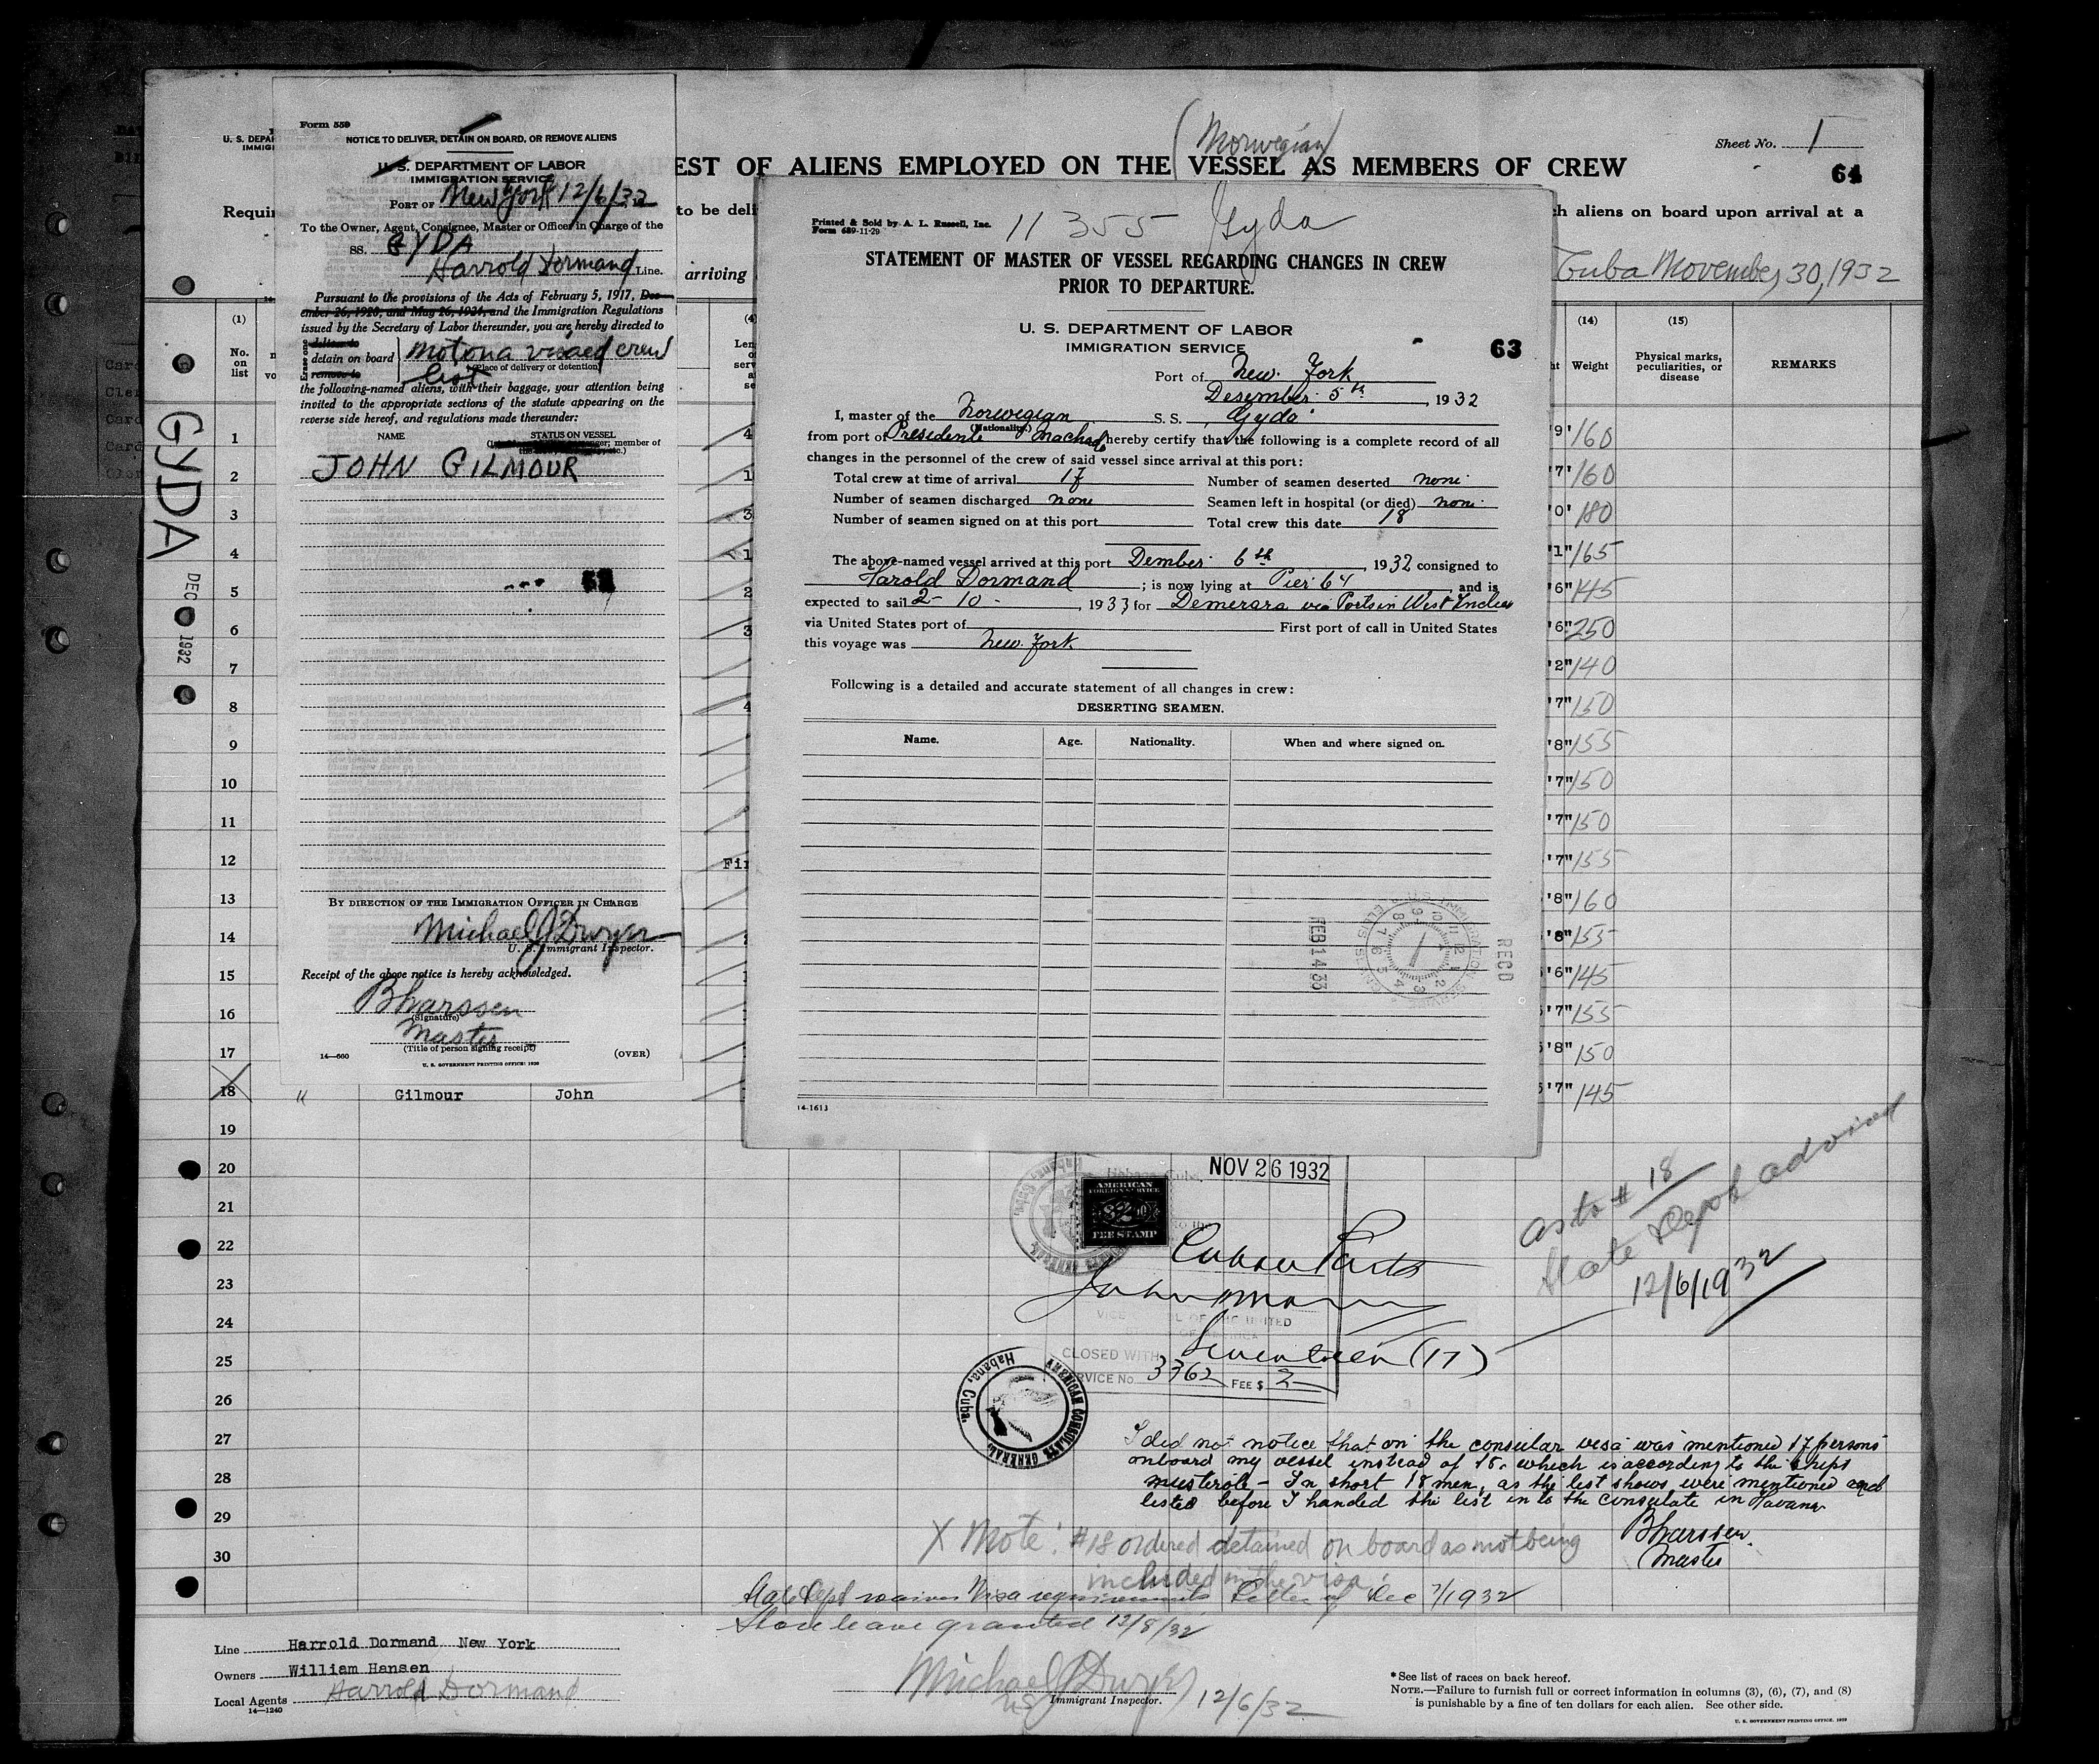 Form 559
NOTICE TO DELIVER, DETAIN ON BOARD, OR REMOVE ALIENS
U. S. DEPARTMENT OF LABOR
IMMIGRATION SERVICE
PORT OF New York 12/6/32
To the Owner, Agent, Consignee, Master or Officer in Charge of the
SS. GYDA
Harrold Dormand Line.
Pursuant to the provisions of the Acts of February 5, 1917, Dec-
ember 26, 1920, and May 26, 1924, and the Immigration Regulations
issued by the Secretary of Labor thereunder, you are hereby directed to
Erase one
deliver to
detain on board
remove to
not on a visaed crew
list
(Place of delivery or detention)
the following-named aliens, with their baggage, your attention being
invited to the appropriate sections of the statute appearing on the
reverse side hereof, and regulations made thereunder:
NAME
STATUS ON VESSEL
member of
JOHN GILMOUR
BY DIRECTION OF THE IMMIGRATION OFFICER IN CHARGE
Michael J Dwyer
U. S. Immigrant Inspector.
Receipt of the above notice is hereby acknowledged.
B Larssen
(Signature)
Master
(Title of person signing receipt)
14—660
(OVER)
U. S. GOVERNMENT PRINTING OFFICE: 1930
U. S. DEPA
IMMIG
EST OF ALIENS EMPLOYED ON THE VESSEL AS MEMBERS OF CREW
(Norwegian)
Sheet No. 1
64
Requi
to be deli
ch aliens on board upon arrival at a
arriving
Cuba November, 30, 1932
(1)
No.
on
list
(4)
Len
(14)
Weight
(15)
Physical marks,
peculiarities, or
disease
REMARKS
GYDA
DEC 1932
1 4 9" 160
2 1 7" 160
3 3 0" 180
4 1 1" 165
5 2 6" 145
6 3 6" 250
7 2" 140
8 4 7" 150
9 8" 155
10 7" 150
11 7" 150
12 Fir 7" 155
13 8" 160
14 8" 155
15 6" 145
16 7" 155
17 8" 150
18 " Gilmour John 7" 145
19
20
21
22
23
24
25
26
27
28
29
30
Printed & Sold by A. L. Russell, Inc.
Form 689-11-29
11355 Gyda
STATEMENT OF MASTER OF VESSEL REGARDING CHANGES IN CREW
PRIOR TO DEPARTURE.
U. S. DEPARTMENT OF LABOR
IMMIGRATION SERVICE
63
Port of New York
Desember 5th, 1932
I, master of the Norwegian S. S. "Gyda"
(Nationality.)
from port of Presidente Machado hereby certify that the following is a complete record of all
changes in the personnel of the crew of said vessel since arrival at this port:
Total crew at time of arrival 17 Number of seamen deserted none
Number of seamen discharged none Seamen left in hospital (or died) none
Number of seamen signed on at this port Total crew this date 18
The above-named vessel arrived at this port Dember 6th, 1932 consigned to
Harold Dormand; is now lying at Pier 64, and is
expected to sail 2-10-, 1933 for Demerara via Ports in West Indies
via United States port of First port of call in United States
this voyage was New York
Following is a detailed and accurate statement of all changes in crew:
DESERTING SEAMEN.
Name. Age. Nationality. When and where signed on.
FEB 14 33
RECD
14-1613
NOV 26 1932
AMERICAN
FOREIGN SERVICE
FEE STAMP
Cuban Ports
CLOSED WITH Seventeen (17)
RVICE No. 3362 FEE $ 2
AMERICAN CONSULATE GENERAL
Habana, Cuba.
as to # 18
State Dept advised
12/6/1932
I did not notice that on the consular visa was mentioned 17 persons
onboard my vessel instead of 18. which is according to the ships
musterole - In short 18 men, as the list shows, were mentioned and
listed before I handed the list in to the consulate in Havana
B Larssen
Master
X Note: #18 ordered detained on board as not being
included in the visa.
State Dept waives Visa requirements Letter of Dec 7/1932
Shore leave granted 12/8/32
Line Harrold Dormand New York
Owners William Hansen
Local Agents Harrold Dormand
14—1240
Michael J Dwyer
US Immigrant Inspector. 12/6/32
* See list of races on back hereof.
NOTE.—Failure to furnish full or correct information in columns (3), (6), (7), and (8)
is punishable by a fine of ten dollars for each alien. See other side.
U. S. GOVERNMENT PRINTING OFFICE, 1929